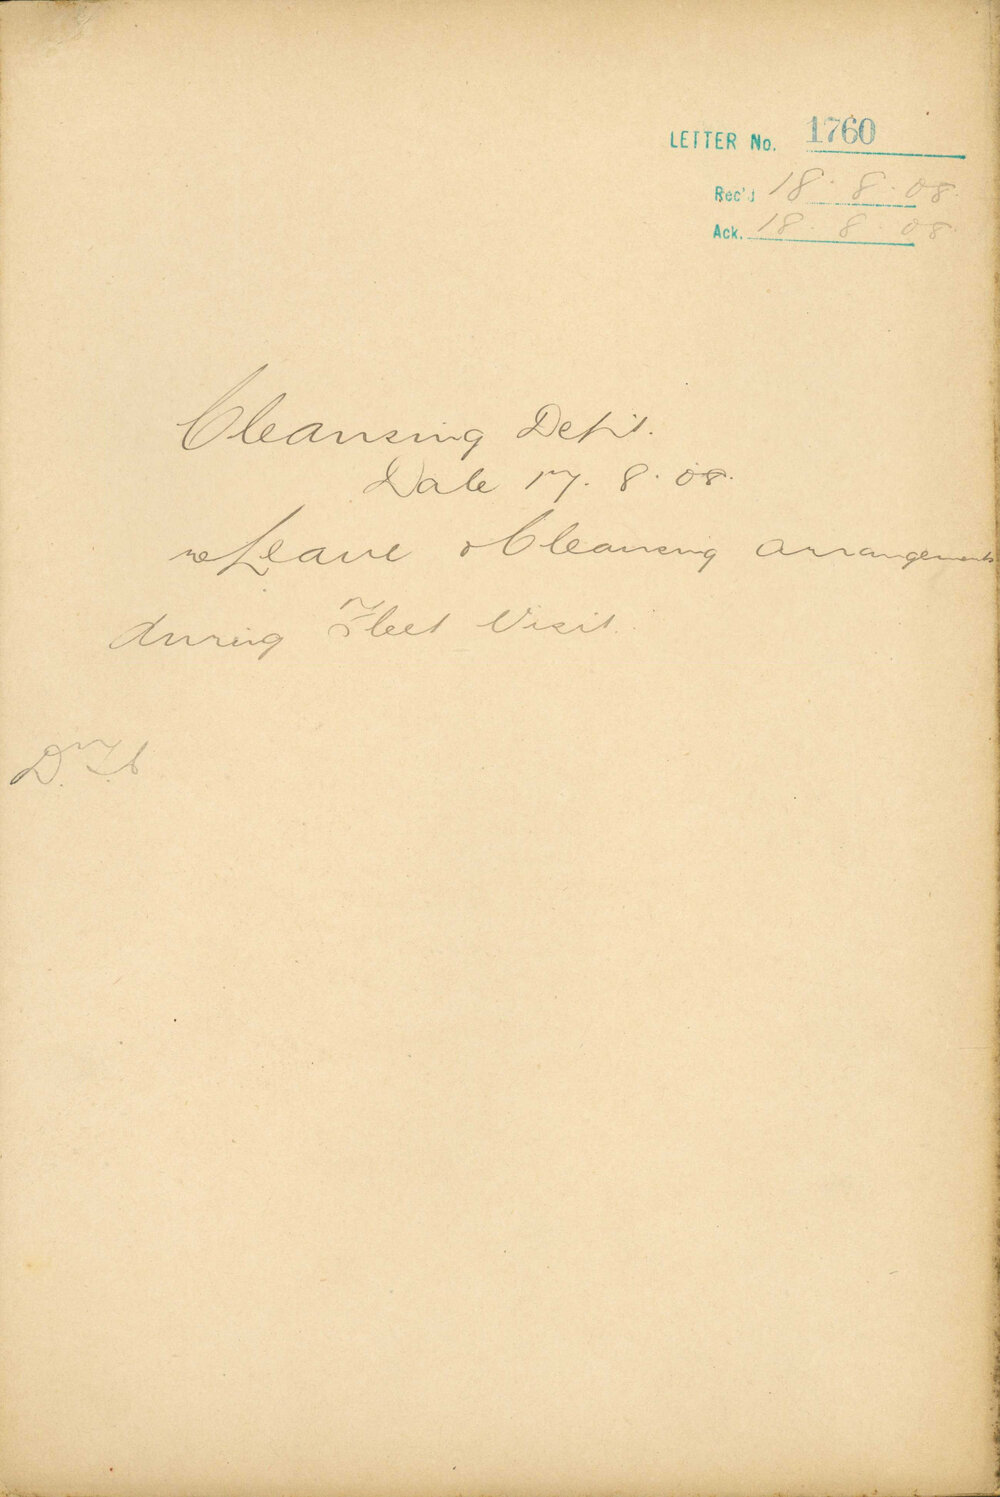 LETTER No. 1760
Rec'd 18. 8. 08.
Ack. 18. 8. 08.
Cleansing Dept.
Date 17. 8. 08.
re Leave & Cleansing arrangements
during Fleet Visit.